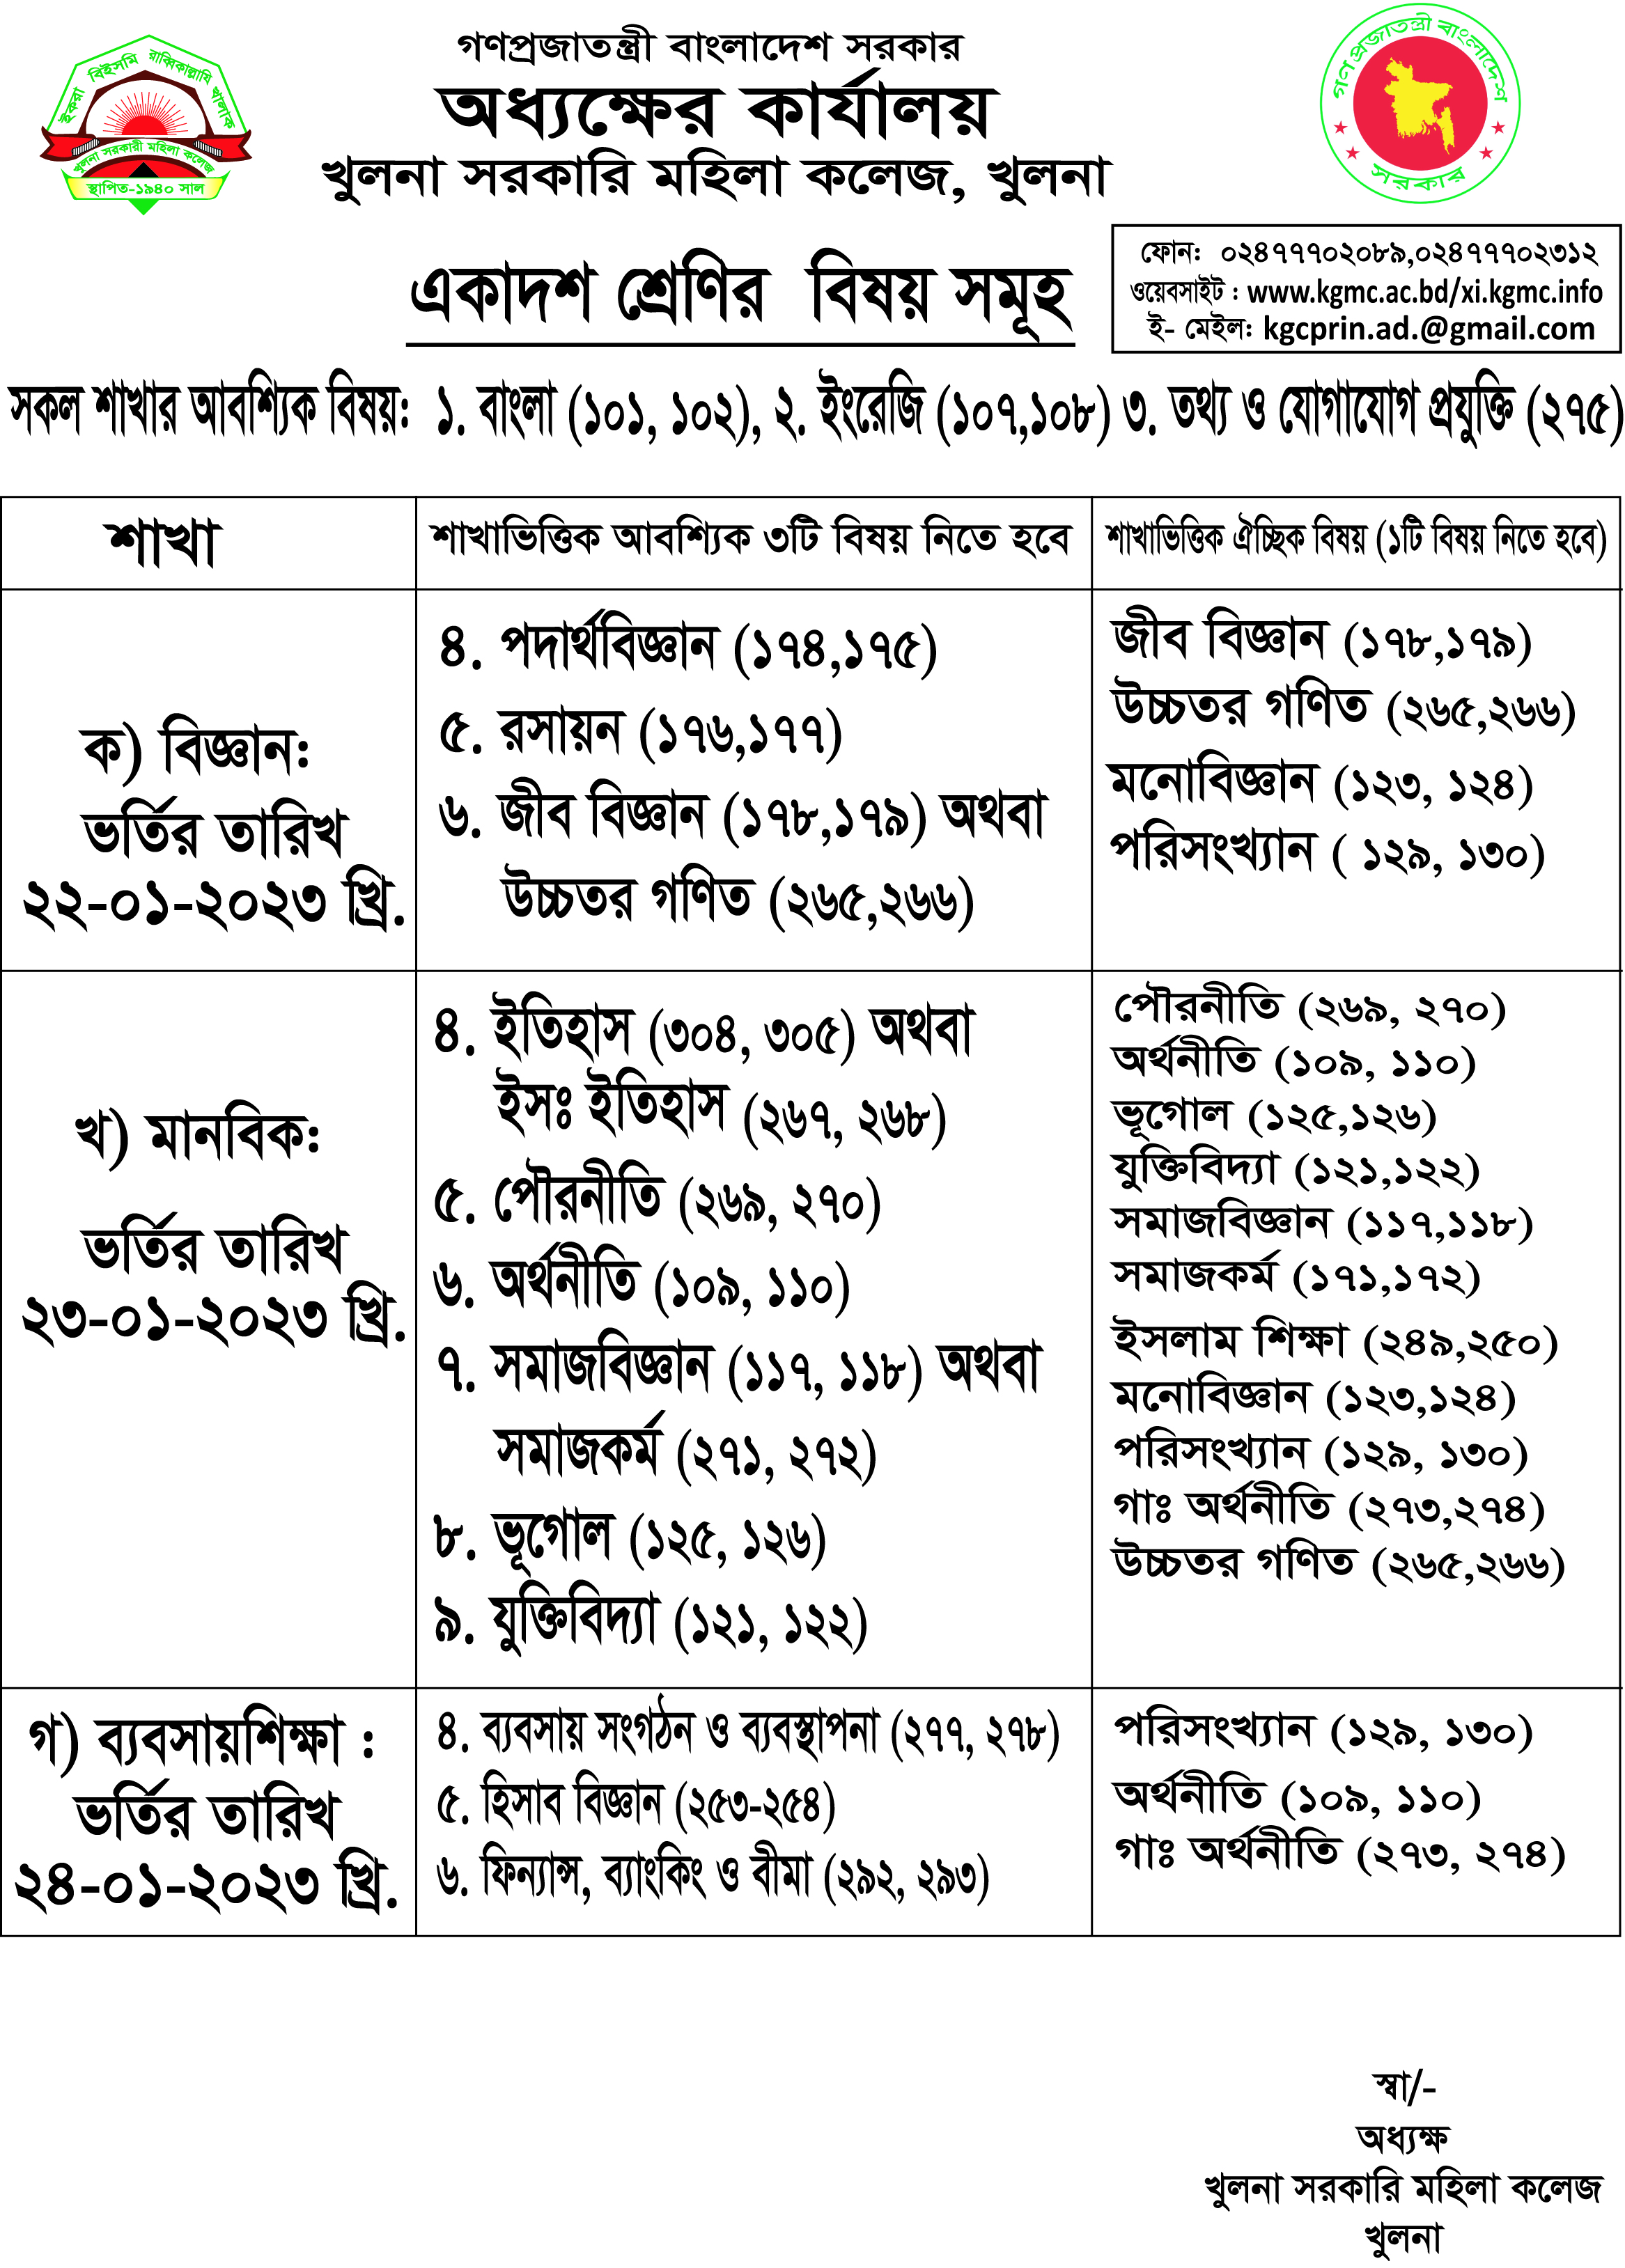 গণপ্রজাতন্ত্রী বাংলাদেশ সরকার
অধ্যক্ষের কার্যালয়
খুলনা সরকারি মহিলা কলেজ, খুলনা
ইকরা বিইসমি রাব্বিকাল্লাযি খালাক
খুলনা সরকারী মহিলা কলেজ
স্থাপিত-১৯৪০ সাল
গণপ্রজাতন্ত্রী বাংলাদেশ
সরকার
একাদশ শ্রেণির বিষয় সমূহ
ফোন: ০২৪৭৭৭০২০৮৯,০২৪৭৭৭০২৩১২
ওয়েবসাইট : www.kgmc.ac.bd/xi.kgmc.info
ই- মেইল: kgcprin.ad.@gmail.com
সকল শাখার আবশ্যিক বিষয়: ১. বাংলা (১০১, ১০২), ২. ইংরেজি (১০৭,১০৮) ৩. তথ্য ও যোগাযোগ প্রযুক্তি (২৭৫)
শাখা
শাখাভিত্তিক আবশ্যিক ৩টি বিষয় নিতে হবে
শাখাভিত্তিক ঐচ্ছিক বিষয় (১টি বিষয় নিতে হবে)
ক) বিজ্ঞান:
ভর্তির তারিখ
২২-০১-২০২৩ খ্রি.
৪. পদার্থবিজ্ঞান (১৭৪,১৭৫)
৫. রসায়ন (১৭৬,১৭৭)
৬. জীব বিজ্ঞান (১৭৮,১৭৯) অথবা
উচ্চতর গণিত (২৬৫,২৬৬)
জীব বিজ্ঞান (১৭৮,১৭৯)
উচ্চতর গণিত (২৬৫,২৬৬)
মনোবিজ্ঞান (১২৩, ১২৪)
পরিসংখ্যান ( ১২৯, ১৩০)
খ) মানবিক:
ভর্তির তারিখ
২৩-০১-২০২৩ খ্রি.
৪. ইতিহাস (৩০৪, ৩০৫) অথবা
ইসঃ ইতিহাস (২৬৭, ২৬৮)
৫. পৌরনীতি (২৬৯, ২৭০)
৬. অর্থনীতি (১০৯, ১১০)
৭. সমাজবিজ্ঞান (১১৭, ১১৮) অথবা
সমাজকর্ম (২৭১, ২৭২)
৮. ভূগোল (১২৫, ১২৬)
৯. যুক্তিবিদ্যা (১২১, ১২২)
পৌরনীতি (২৬৯, ২৭০)
অর্থনীতি (১০৯, ১১০)
ভূগোল (১২৫,১২৬)
যুক্তিবিদ্যা (১২১,১২২)
সমাজবিজ্ঞান (১১৭,১১৮)
সমাজকর্ম (১৭১,১৭২)
ইসলাম শিক্ষা (২৪৯,২৫০)
মনোবিজ্ঞান (১২৩,১২৪)
পরিসংখ্যান (১২৯, ১৩০)
গাঃ অর্থনীতি (২৭৩,২৭৪)
উচ্চতর গণিত (২৬৫,২৬৬)
গ) ব্যবসায়শিক্ষা :
ভর্তির তারিখ
২৪-০১-২০২৩ খ্রি.
৪. ব্যবসায় সংগঠন ও ব্যবস্থাপনা (২৭৭, ২৭৮)
৫. হিসাব বিজ্ঞান (২৫৩-২৫৪)
৬. ফিন্যান্স, ব্যাংকিং ও বীমা (২৯২, ২৯৩)
পরিসংখ্যান (১২৯, ১৩০)
অর্থনীতি (১০৯, ১১০)
গাঃ অর্থনীতি (২৭৩, ২৭৪)
স্বা/-
অধ্যক্ষ
খুলনা সরকারি মহিলা কলেজ
খুলনা